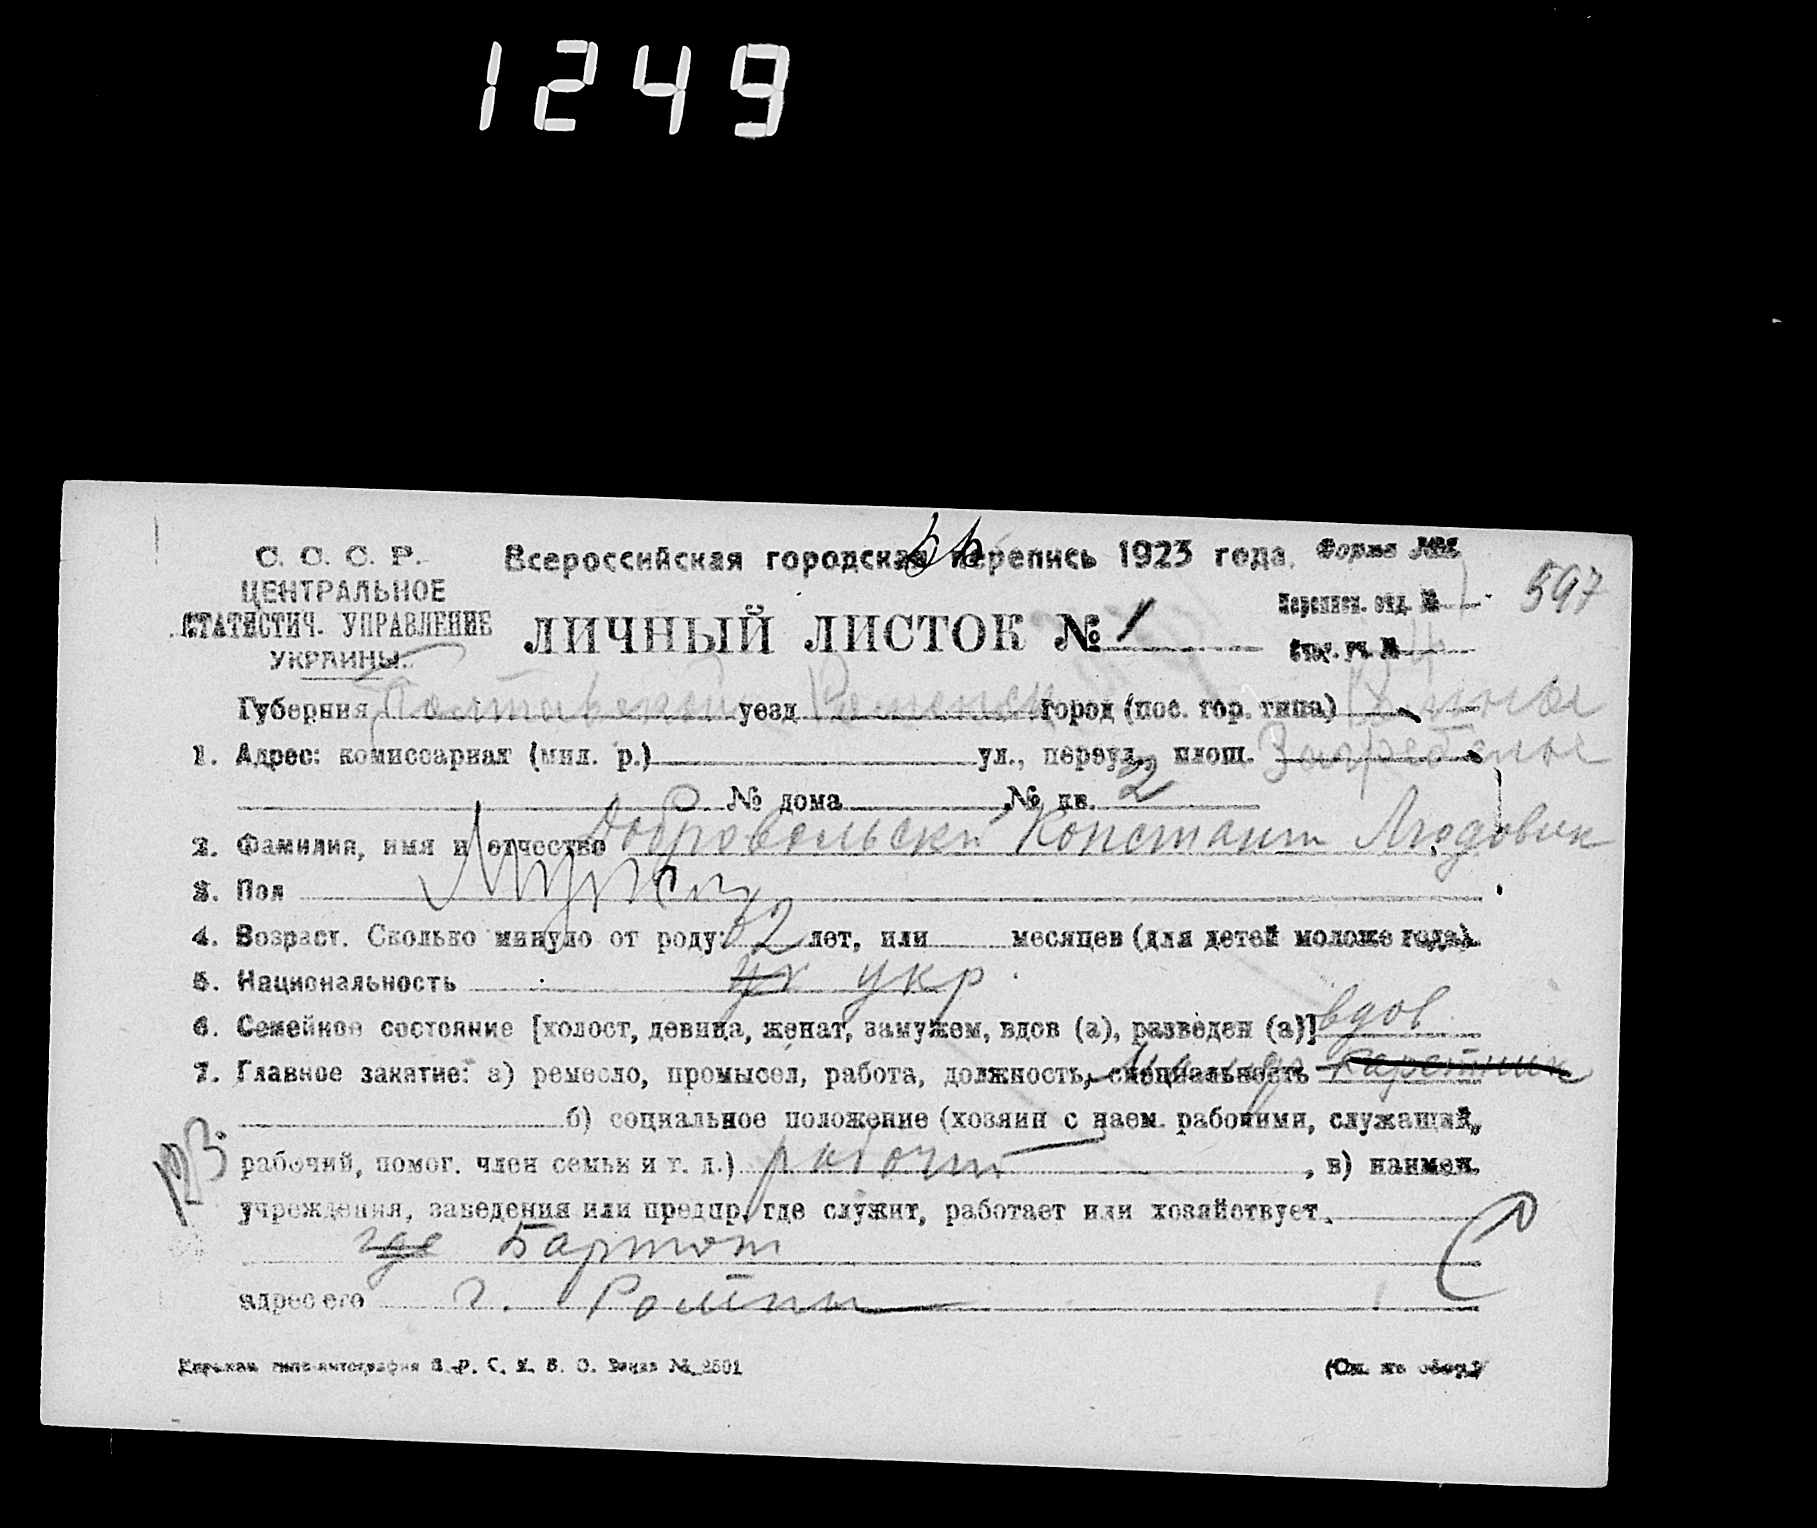 1249
С. С. С. Р.
ЦЕНТРАЛЬНОЕ
СТАТИСТИЧ. УПРАВЛЕНИЕ
УКРАИНЫ.
Всероссийская городская перепись 1923 года.
Форма №
597
ЛИЧНЫЙ ЛИСТОК № 1
Переписн. отд. №
уч. №
Губерния Полтавской уезд Роменск город (пос. гор. типа)
1. Адрес: комиссариат (мил. р.) ул., переул., площ.
№ дома № кв. 2
2. Фамилия, имя и отчество Добровольски Константи Людовик
3. Пол Муж
4. Возраст. Сколько минуло от роду 2 лет, или месяцев (для детей моложе года).
5. Национальность ук укр
6. Семейное состояние [холост, девица, женат, замужем, вдов (а), разведен (а)] вдов
7. Главное занятие: а) ремесло, промысел, работа, должность, специальность каретник
б) социальное положение (хозяин с наем. рабочими, служащий,
рабочий, помог. член семьи и т. д.) рабочий, в) наимен.
учреждения, заведения или предпр. где служит, работает или хозяйствует.
где
адрес его г. Ромны
№ 2501
(См. на обор.)